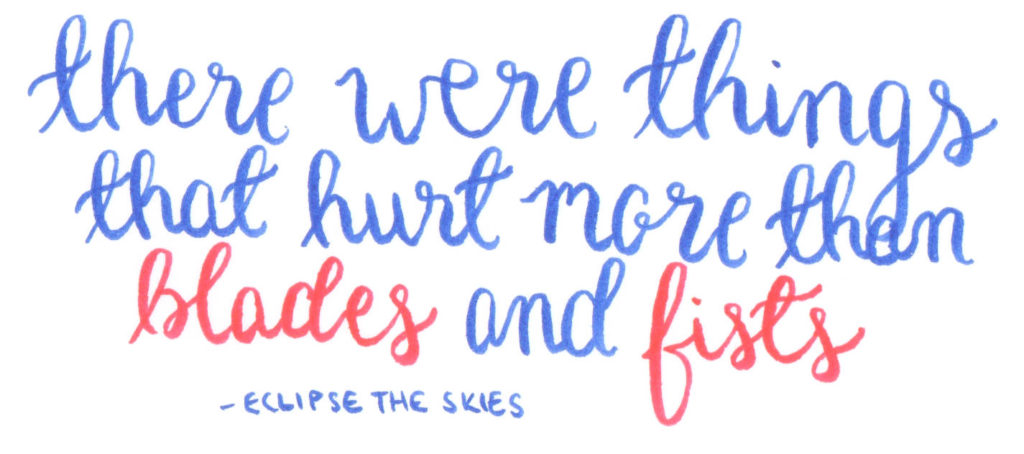 there were things
that hurt more than
blades and fists
- ECLIPSE THE SKIES